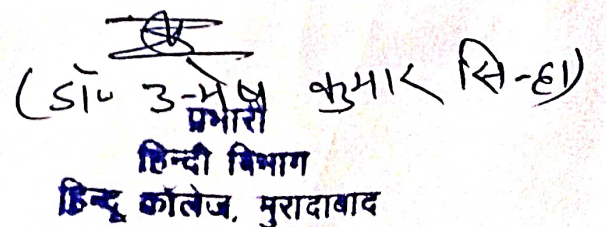 (डॉ० उन्मेष कुमार सिन्हा)
प्रभारी
हिन्दी विभाग
हिन्दू कॉलेज, मुरादाबाद